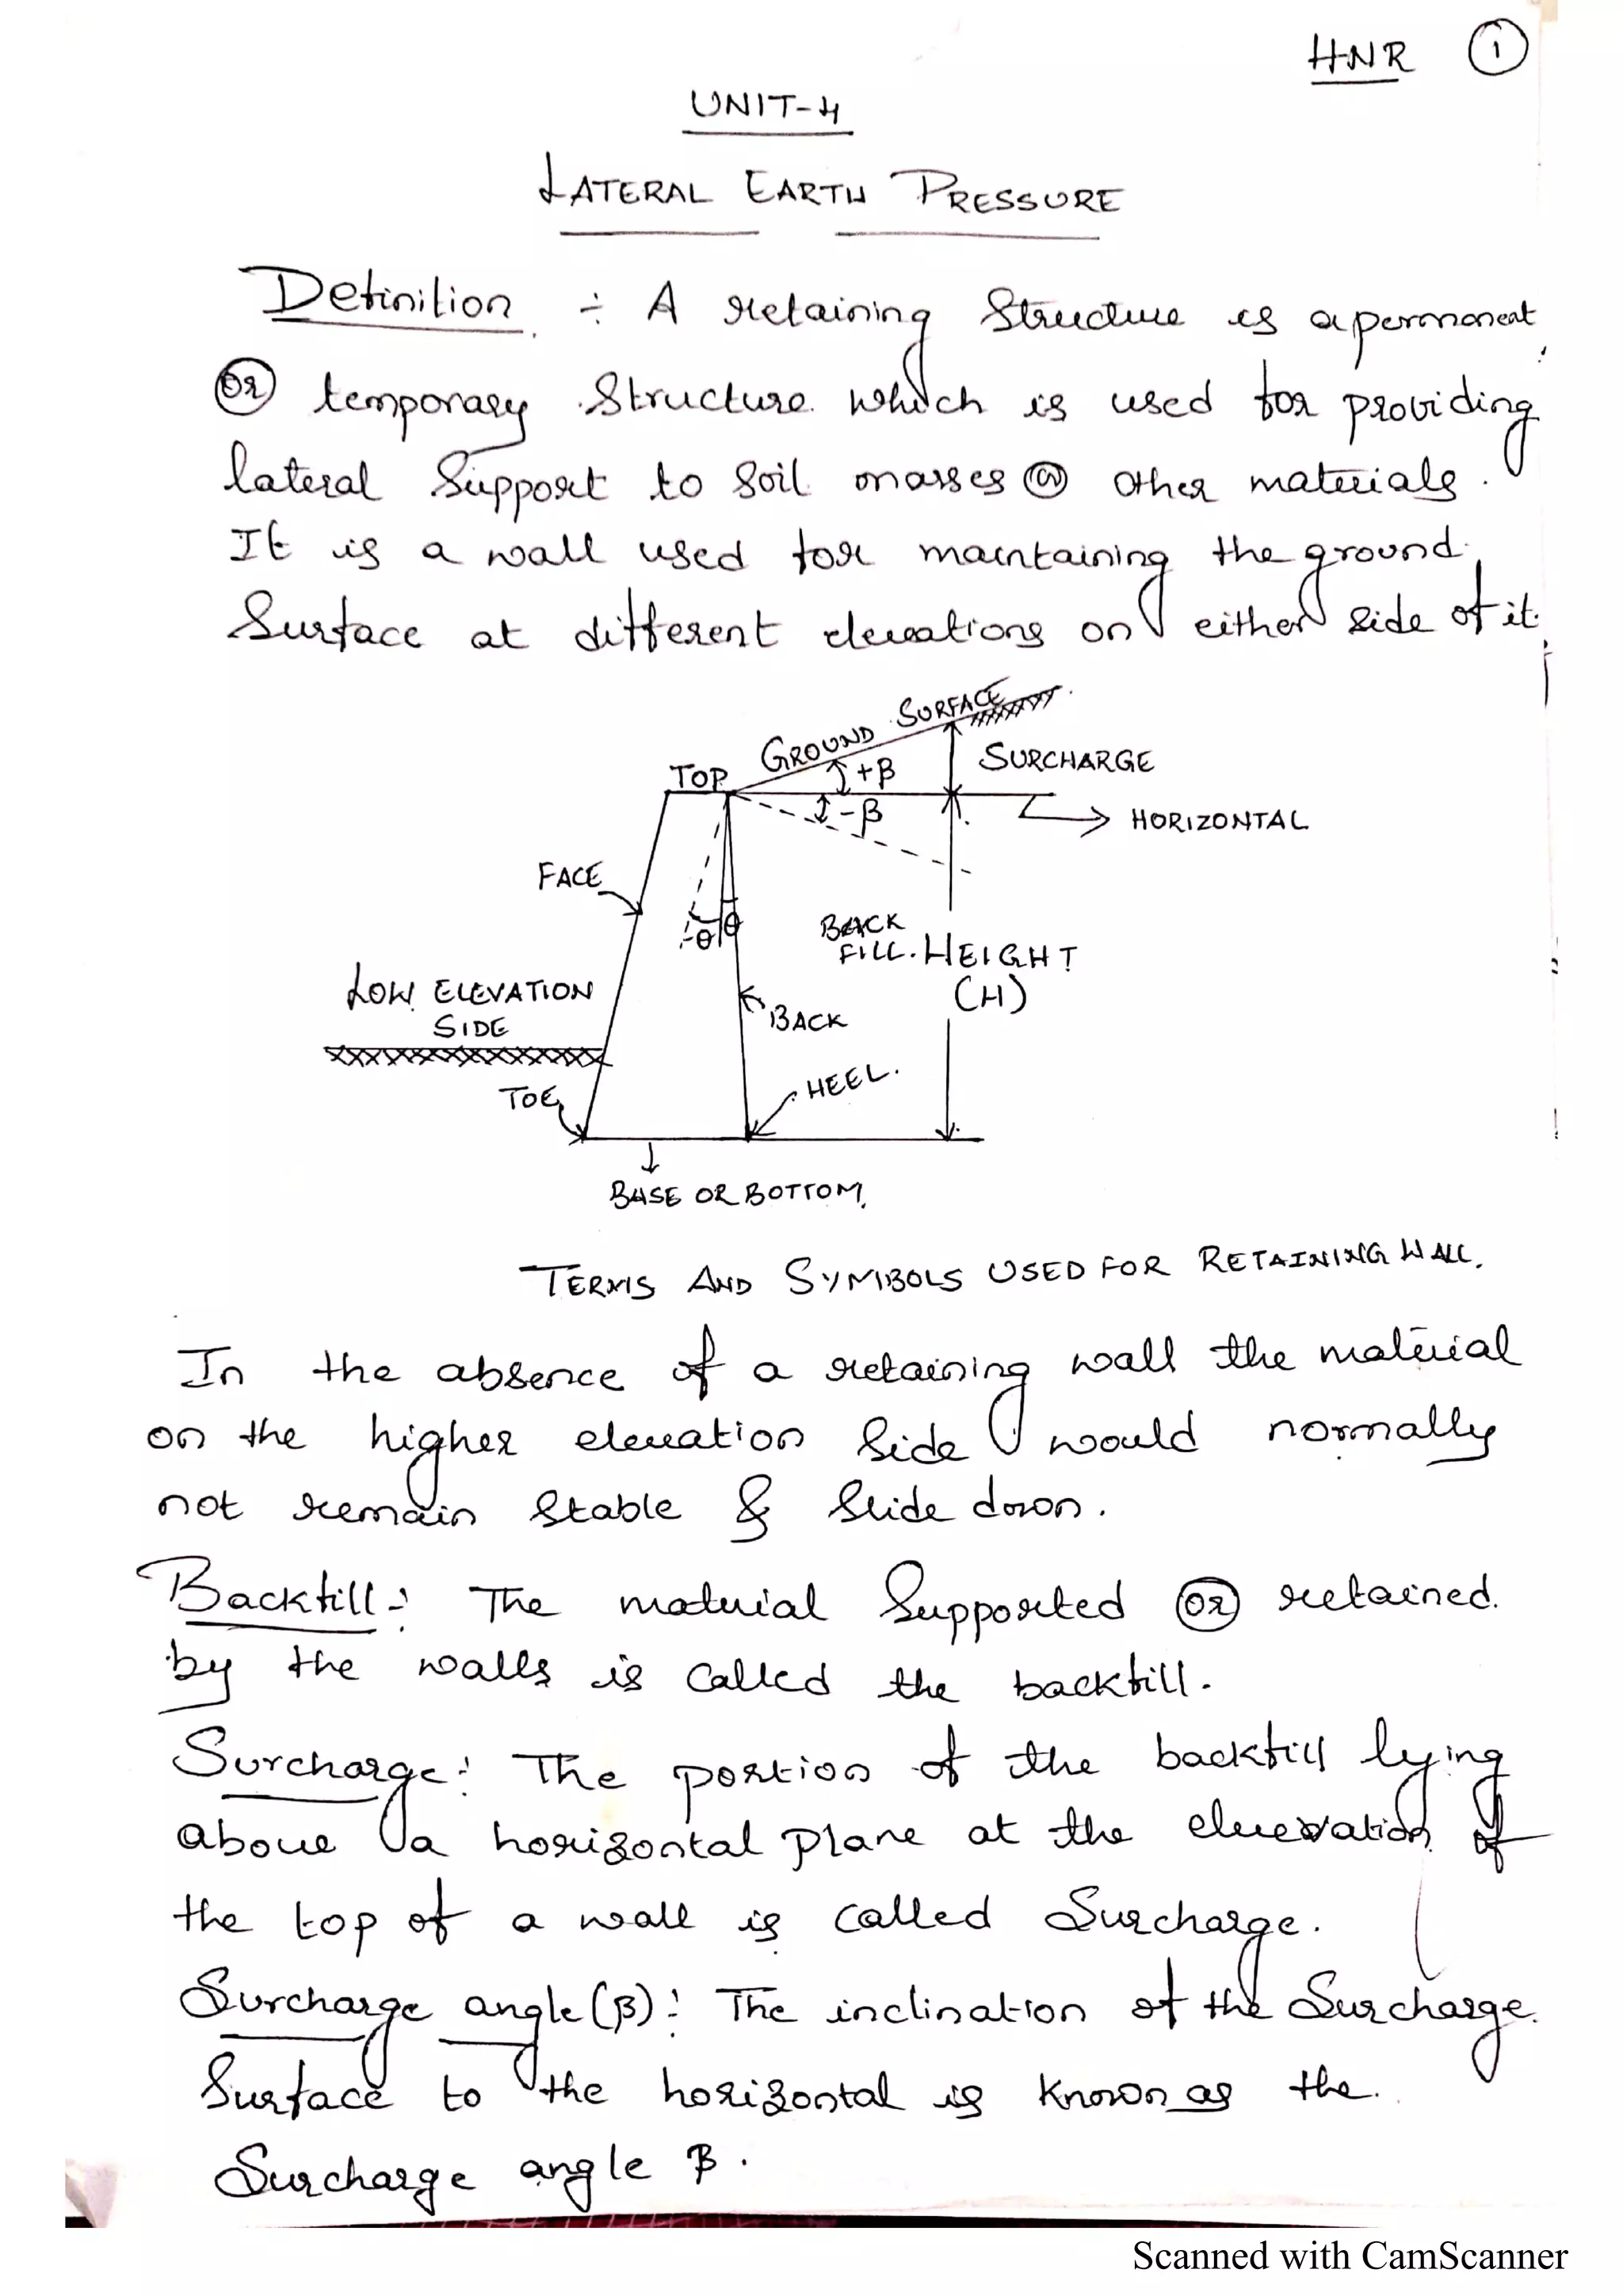 HNR ①
UNIT-4
LATERAL EARTH PRESSURE
Definition ÷ A retaining Structure is a permanent
or temporary Structure which is used for providing
lateral Support to Soil masses or other materials.
It is a wall used for maintaining the ground
Surface at different elevations on either side of it.
GROUND SURFACE
TOP
+β
SURCHARGE
-β
HORIZONTAL
FACE
-θ θ
BACK
FILL.
HEIGHT
(H)
LOW ELEVATION
SIDE
BACK
TOE
HEEL.
BASE OR BOTTOM.
TERMS AND SYMBOLS USED FOR RETAINING WALL.
In the absence of a retaining wall the material
on the higher elevation Side would normally
not remain Stable & Slide down.
Backfill:- The material Supported or retained.
by the walls is Called the backfill.
Surcharge: The portion of the backfill lying
above a horizontal plane at the elevation of
the top of a wall is called Surcharge.
Surcharge angle (β): The inclination of the Surcharge
Surface to the horizontal is known as the.
Surcharge angle β.
Scanned with CamScanner